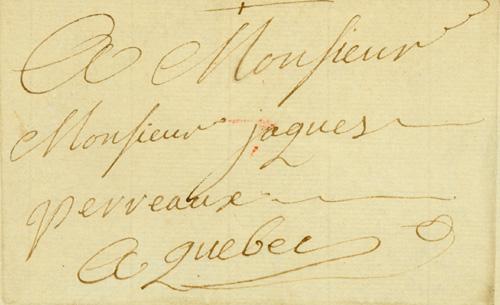 A Monsieur
Monsieur jaques
perreaux
A quebec